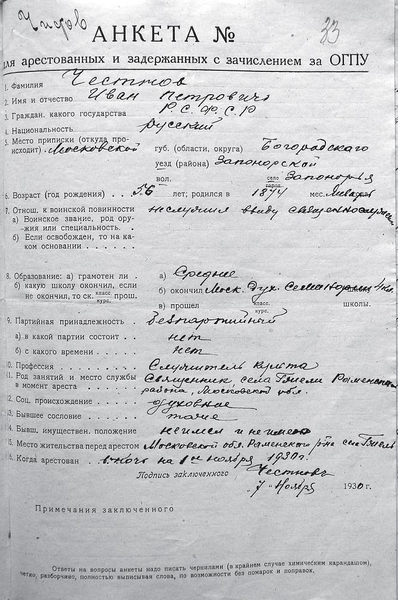 33
АНКЕТА №
для арестованных и задержанных с зачислением за ОГПУ
1. Фамилия Честнов
2. Имя и отчество Иван Петрович
3. Граждан. какого государства Р.С.Ф.С.Р
4. Национальность Русский
5. Место приписки (откуда про-
исходит) Московской губ. (области, округа) Богородского
уезд (района) Запонорской
вол. село Запонорья
6. Возраст (год рождения) 56 лет; родился в 1874 мес. Января
7. Отнош. к воинской повинности неслужил ввиду священнослужения
а) Воинское звание, род ору-
жия или специальность.
б) Если освобожден, то на ка-
ком основании
8. Образование: а) грамотен ли а) Среднее
б) какую школу окончил, если б) окончил Моск. Дух. Семинарии
не окончил, то ск. класс. курс. прош. класс. курс.
в) прошел школы.
9. Партийная принадлежность Безпартийный
а) в какой партии состоит нет
б) с какого времени нет
10. Профессия Служитель культа
11. Род занятий и место службы Священник села Гжели Раменского
в момент ареста района, Московской обл.
12. Соц. происхождение духовное
13. Бывшее сословие тоже
14. Бывш. имуществен. положение неимел и не имею
15. Место жительства перед арестом Московской обл. Раменского р-на село Гжель
16. Когда арестован в ночь на 1е ноября 1930 г.
Подпись заключенного Честнов
7 Ноября 1930 г.
Примечания заключенного
Ответы на вопросы анкеты надо писать чернилами (в крайнем случае химическим карандашом),
четко, разборчиво, полностью выписывая слова, по возможности без помарок и поправок.